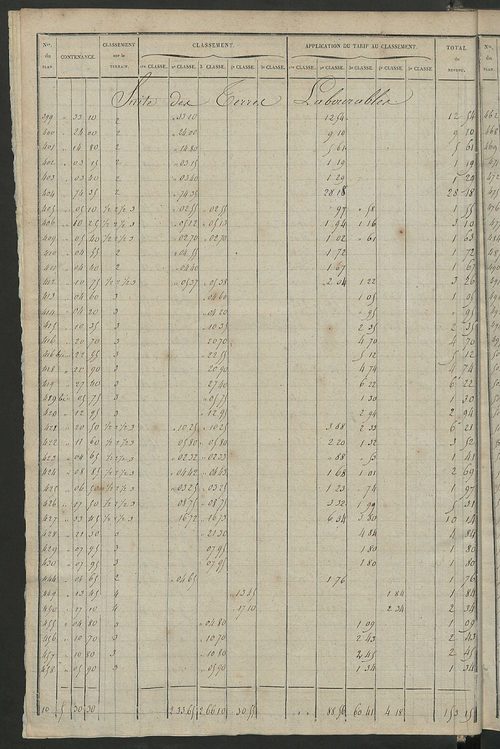 Nos. du PLAN. CONTENANCE. CLASSEMENT sur le TERRAIN. CLASSEMENT. APPLICATION DU TARIF AU CLASSEMENT. TOTAL du REVENU.
1re CLASSE. 2e CLASSE. 3e CLASSE. 4e CLASSE. 5e CLASSE. 1re CLASSE. 2e CLASSE. 3e CLASSE. 4e CLASSE. 5e CLASSE
Suite des Terres Labourables
399 " 33 10 2 " 33 10 12 54 12 54
400 " 24 00 2 " 24 00 9 10 9 10
401 " 14 80 2 " 14 80 5 61 5 61
402 " 03 15 2 " 03 15 1 19 1 19
403 " 03 40 2 " 03 40 1 29 1 29
404 " 74 35 2 " 74 35 28 18 28 18
405 " 05 10 ½ 2 ½ 3 " 02 55 " 02 55 " 97 " 58 1 55
406 " 10 25 ½ 2 ½ 3 " 05 12 " 05 13 1 94 1 16 3 10
409 " 05 40 ½ 2 ½ 3 " 02 70 " 02 70 1 02 " 61 1 63
410 " 04 55 2 " 04 55 1 72 1 72
411 " 04 40 2 " 04 40 1 67 1 67
412 " 10 75 ½ 2 ½ 3 " 05 37 " 05 38 2 04 1 22 3 26
413 " 04 60 3 " 04 60 1 05 1 05
414 " 04 20 3 " 04 20 " 95 " 95
415 " 10 35 3 " 10 35 2 35 2 35
416 " 20 70 3 " 20 70 4 70 4 70
416 bis " 22 55 3 " 22 55 5 12 5 12
418 " 20 90 3 " 20 90 4 74 4 74
419 " 27 40 3 " 27 40 6 22 6 22
419 bis " 05 75 3 " 05 75 1 30 1 30
420 " 12 95 3 " 12 95 2 94 2 94
421 " 20 50 ½ 2 ½ 3 " 10 25 " 10 25 3 88 2 33 6 21
422 " 11 60 ½ 2 ½ 3 " 05 80 " 05 80 2 20 1 32 3 52
423 " 04 65 ½ 2 ½ 3 " 02 32 " 02 33 " 88 " 53 1 41
424 " 08 85 ½ 2 ½ 3 " 04 42 " 04 43 1 68 1 01 2 69
425 " 06 50 ½ 2 ½ 3 " 03 25 " 03 25 1 23 " 74 1 97
426 " 17 50 ½ 2 ½ 3 " 08 75 " 08 75 3 32 1 99 5 31
427 " 33 45 ½ 2 ½ 3 " 16 72 " 16 73 6 34 3 80 10 14
428 " 21 30 3 " 21 30 4 84 4 84
429 " 07 95 3 07 95 1 80 1 80
430 " 07 95 3 07 95 1 80 1 80
444 " 04 65 2 " 04 65 1 76 1 76
449 " 13 45 4 " 13 45 1 84 1 84
450 " 17 10 4 " 17 10 2 34 2 34
455 " 04 80 3 " 04 80 1 09 1 09
456 " 10 70 3 " 10 70 2 43 2 43
457 " 10 80 3 " 10 80 2 45 2 45
458 " 05 90 3 " 05 90 1 34 1 34
5 30 30 2 33 65 2 66 10 " 30 55 88 56 60 41 4 18 153 15